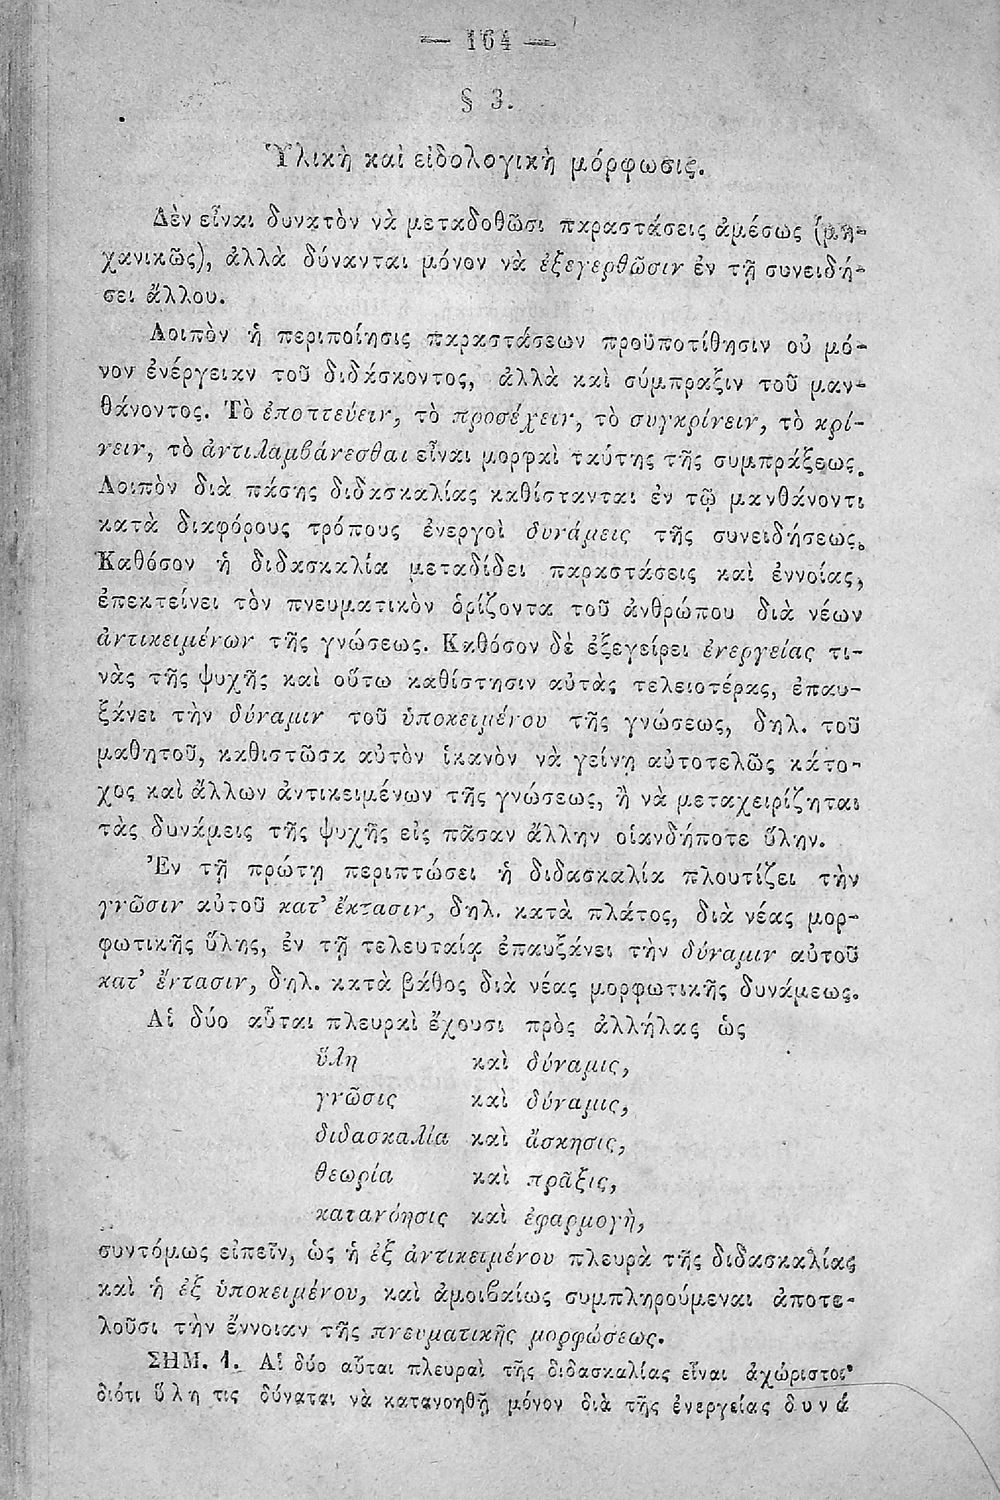 — 164 —
§ 3.
Ὑλικὴ καὶ εἰδολογικὴ μόρφωσις.
Δὲν εἶναι δυνατὸν νὰ μεταδοθῶσι παραστάσεις ἀμέσως (μη-
χανικῶς), ἀλλὰ δύνανται μόνον νὰ ἐξεγερθῶσιν ἐν τῇ συνειδή-
σει ἄλλου.
Λοιπὸν ἡ περιποίησις παραστάσεων προϋποτίθησιν οὐ μό-
νον ἐνέργειαν τοῦ διδάσκοντος, ἀλλὰ καὶ σύμπραξιν τοῦ μαν-
θάνοντος. Τὸ ἐποπτεύειν, τὸ προσέχειν, τὸ συγκρίνειν, τὸ κρί-
νειν, τὸ ἀντιλαμβάνεσθαι εἶναι μορφαὶ ταύτης τῆς συμπράξεως.
Λοιπὸν διὰ πάσης διδασκαλίας καθίστανται ἐν τῷ μανθάνοντι
κατὰ διαφόρους τρόπους ἐνεργοὶ δυνάμεις τῆς συνειδήσεως.
Καθόσον ἡ διδασκαλία μεταδίδει παραστάσεις καὶ ἐννοίας,
ἐπεκτείνει τὸν πνευματικὸν ὁρίζοντα τοῦ ἀνθρώπου διὰ νέων
ἀντικειμένων τῆς γνώσεως. Καθόσον δὲ ἐξεγείρει ἐνεργείας τι-
νὰς τῆς ψυχῆς καὶ οὕτω καθίστησιν αὐτὰς τελειοτέρας, ἐπαυ-
ξάνει τὴν δύναμιν τοῦ ὑποκειμένου τῆς γνώσεως, δηλ. τοῦ
μαθητοῦ, καθιστῶσα αὐτὸν ἱκανὸν νὰ γείνῃ αὐτοτελῶς κάτο-
χος καὶ ἄλλων ἀντικειμένων τῆς γνώσεως, ἢ νὰ μεταχειρίζηται
τὰς δυνάμεις τῆς ψυχῆς εἰς πᾶσαν ἄλλην οἱανδήποτε ὕλην.
Ἐν τῇ πρώτῃ περιπτώσει ἡ διδασκαλία πλουτίζει τὴν
γνῶσιν αὐτοῦ κατ' ἔκτασιν, δηλ. κατὰ πλάτος, διὰ νέας μορ-
φωτικῆς ὕλης, ἐν τῇ τελευταίᾳ ἐπαυξάνει τὴν δύναμιν αὐτοῦ
κατ' ἔντασιν, δηλ. κατὰ βάθος διὰ νέας μορφωτικῆς δυνάμεως.
Αἱ δύο αὗται πλευραὶ ἔχουσι πρὸς ἀλλήλας ὡς
ὕλη καὶ δύναμις,
γνῶσις καὶ δύναμις,
διδασκαλία καὶ ἄσκησις,
θεωρία καὶ πρᾶξις,
κατανόησις καὶ ἐφαρμογὴ,
συντόμως εἰπεῖν, ὡς ἡ ἐξ ἀντικειμένου πλευρὰ τῆς διδασκαλίας
καὶ ἡ ἐξ ὑποκειμένου, καὶ ἀμοιβαίως συμπληρούμεναι ἀποτε-
λοῦσι τὴν ἔννοιαν τῆς πνευματικῆς μορφώσεως.
ΣΗΜ. 1. Αἱ δύο αὗται πλευραὶ τῆς διδασκαλίας εἶναι ἀχώριστοι·
διότι ὕλη τις δύναται νὰ κατανοηθῇ μόνον διὰ τῆς ἐνεργείας δυνά